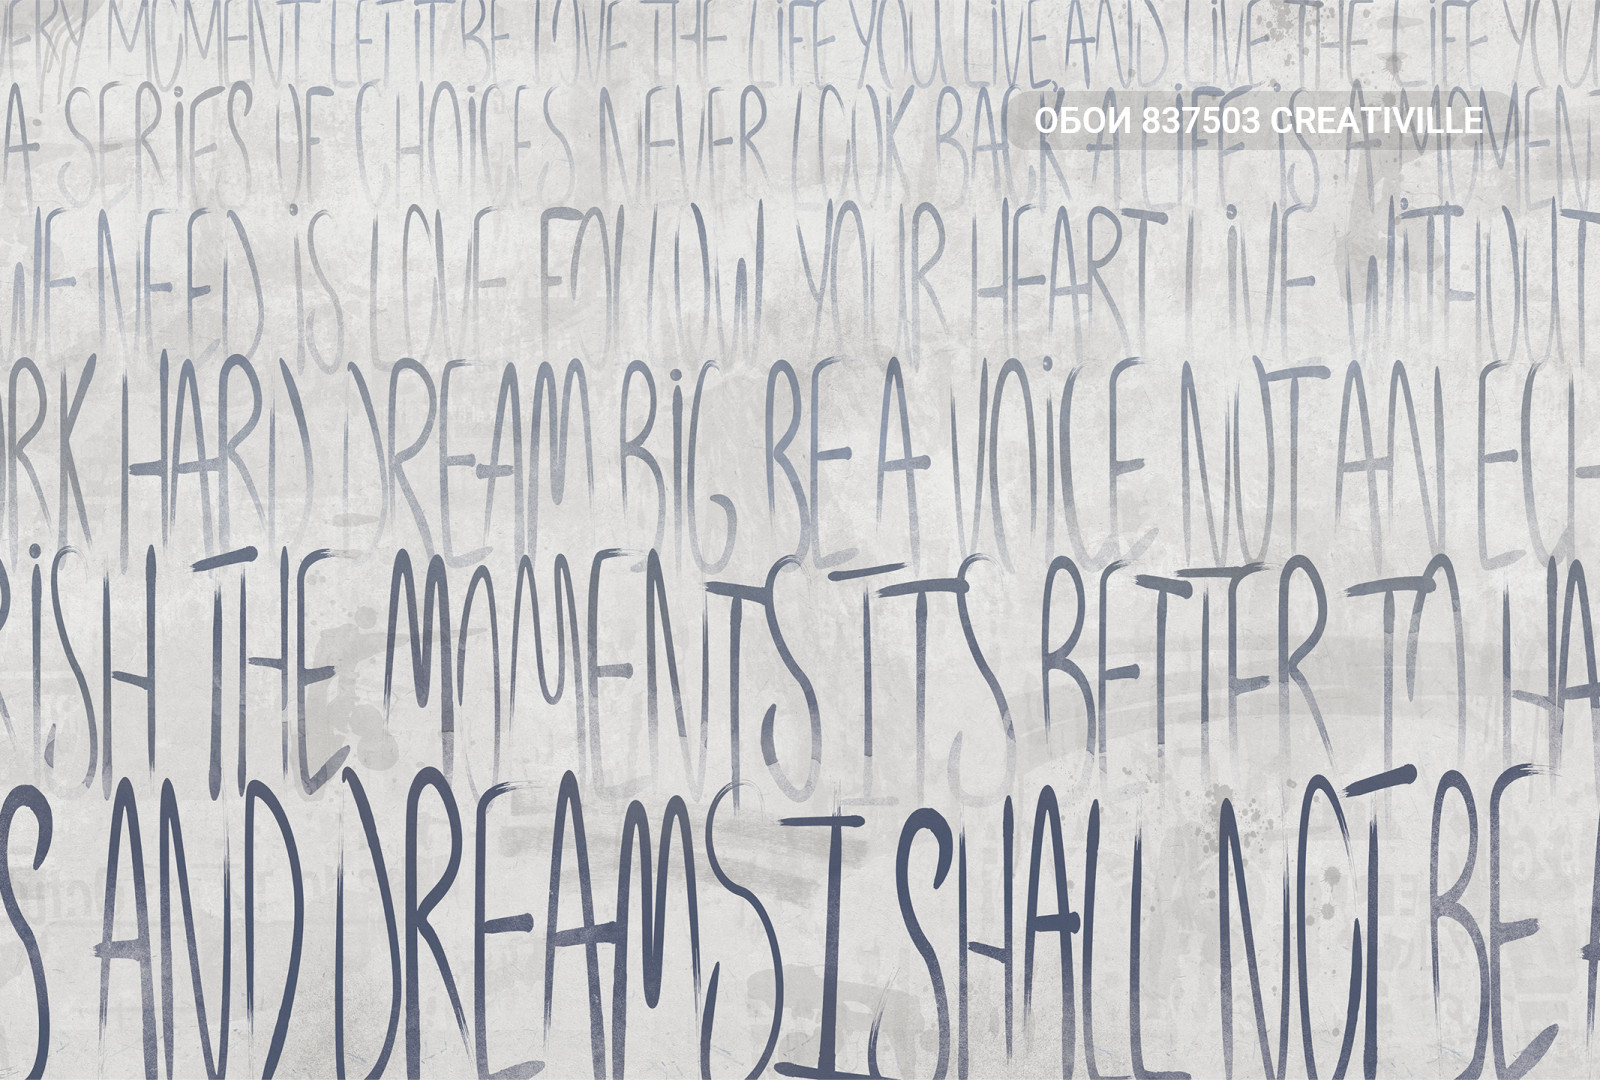 ERY MOMENT LET IT BE LOVE THE LIFE YOU LIVE AND LIVE THE LIFE YOU
A SERIES OF CHOICES NEVER LOOK BACK A LIFE IS A MOMEN
ОБОИ 837503 CREATIVILLE
WE NEED IS LOVE FOLLOW YOUR HEART LIVE WITHOUT
RK HARD DREAM BIG BE A VOICE NOT AN ECH
RISH THE MOMENTS ITS BETTER TO HA
S AND DREAMS I SHALL NOT BE A